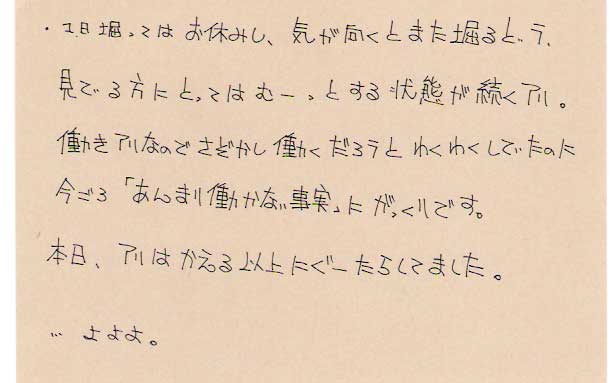 ・1日堀ってはお休みし、気が向くとまた堀るという、
見てる方にとってはむーっとする状態が続くアリ。
働きアリなのでさぞかし働くだろうとわくわくしていたのに
今ごろ「あんまり働かない事実」にがっくりです。
本日、アリはかえる以上にぐーたらしてました。
… よよよ。